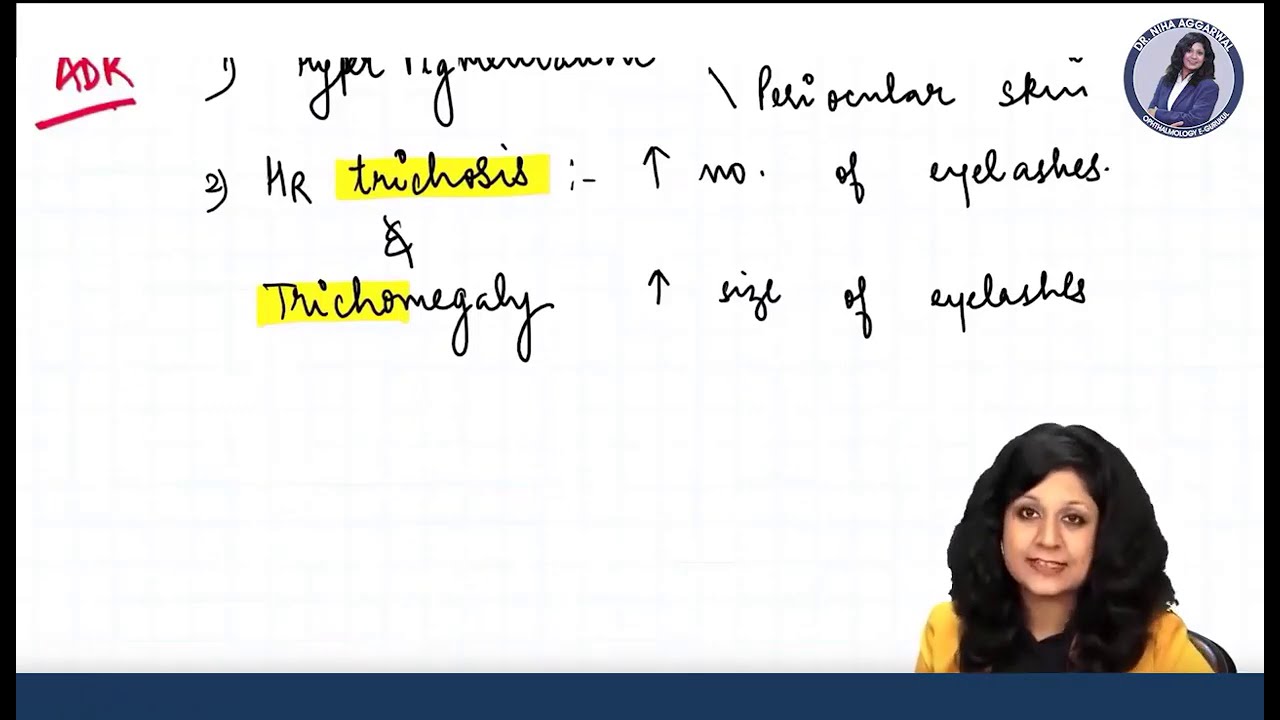 ADR
1) Hyper Pigmentation \ Periocular skin
2) HR trichosis :- ↑ no. of eyelashes.
&
Trichomegaly ↑ size of eyelashes
DR. NIHA AGGARWAL
OPHTHALMOLOGY E-GURUKUL